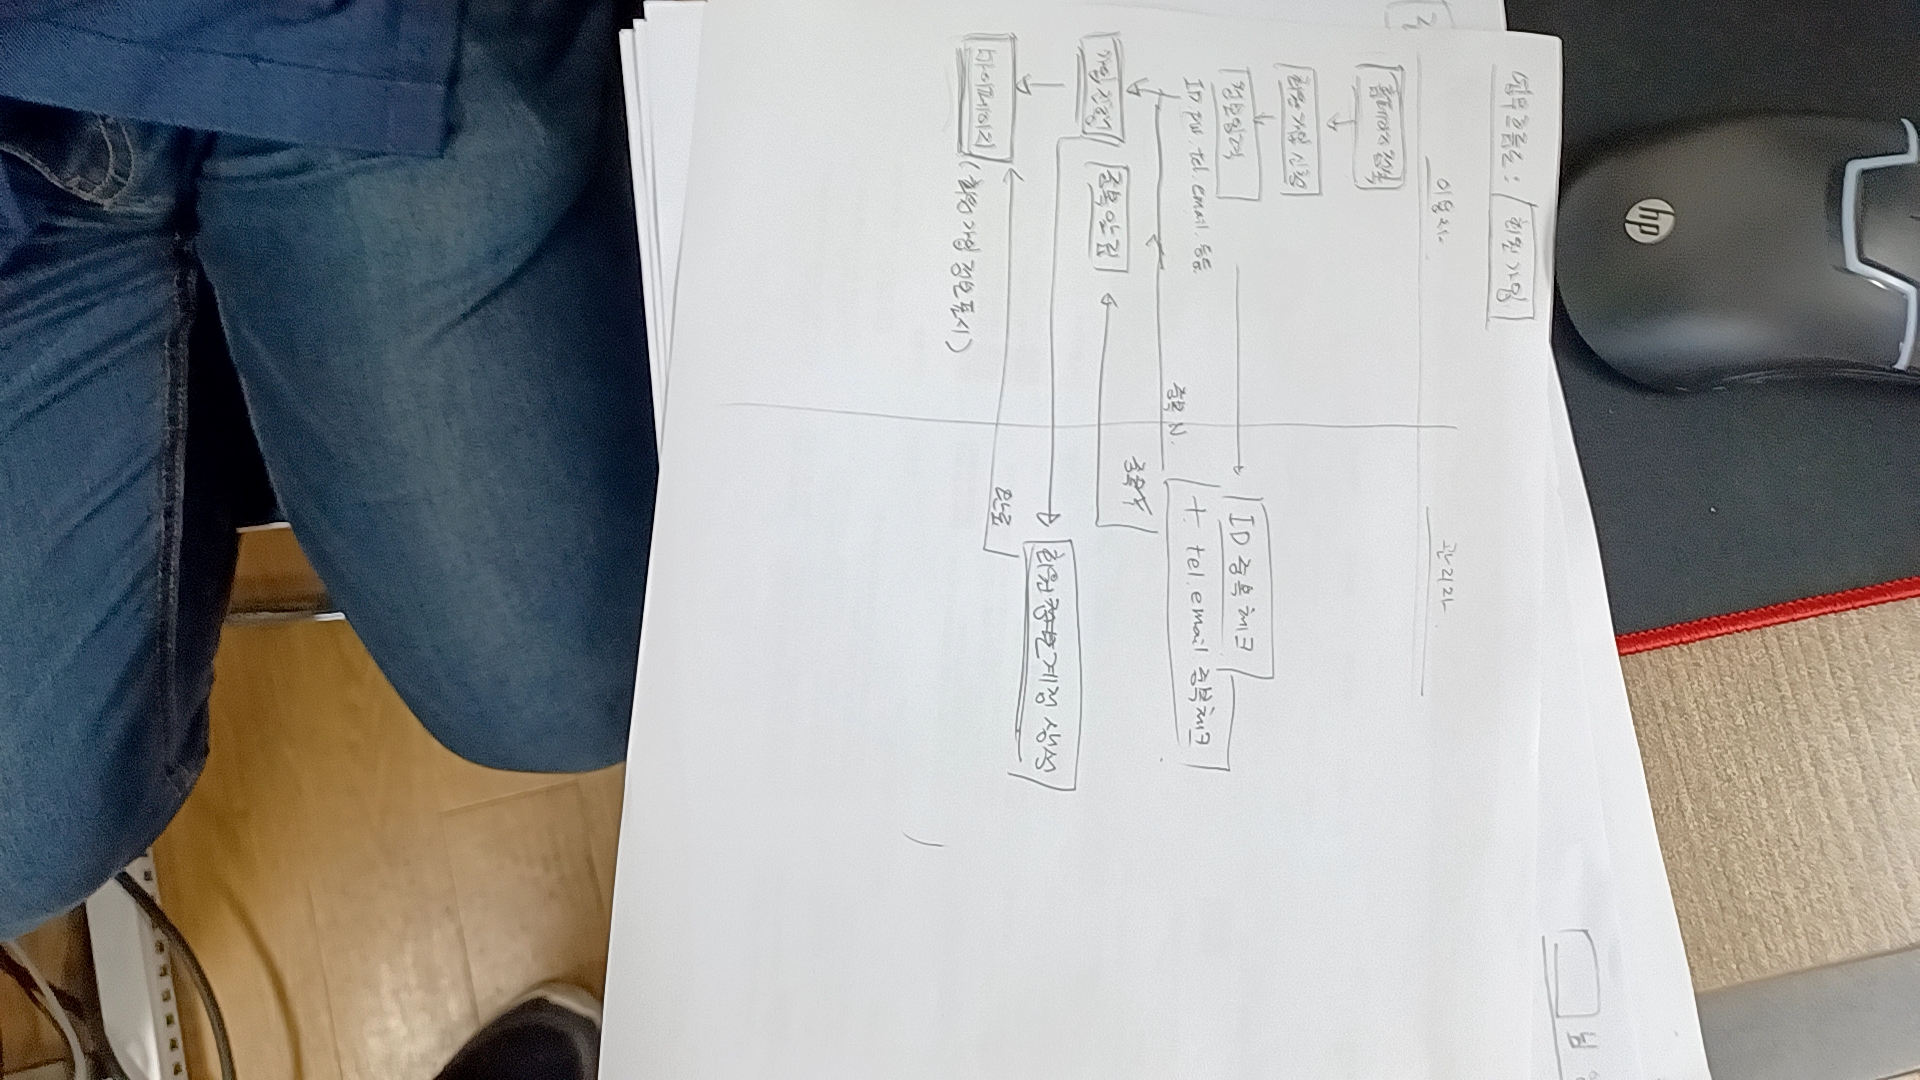 업무흐름도: 회원가입
이용자
관리자
홈페이지접속
회원가입 신청
정보입력
ID 중복체크
ID. pw. tel. email. 등등
+. tel. email 중복체크
중복 N.
중복 Y
가입진행
중복있음
회원정보계정 생성
완료
마이페이지 (회원가입 정보표시)
hp